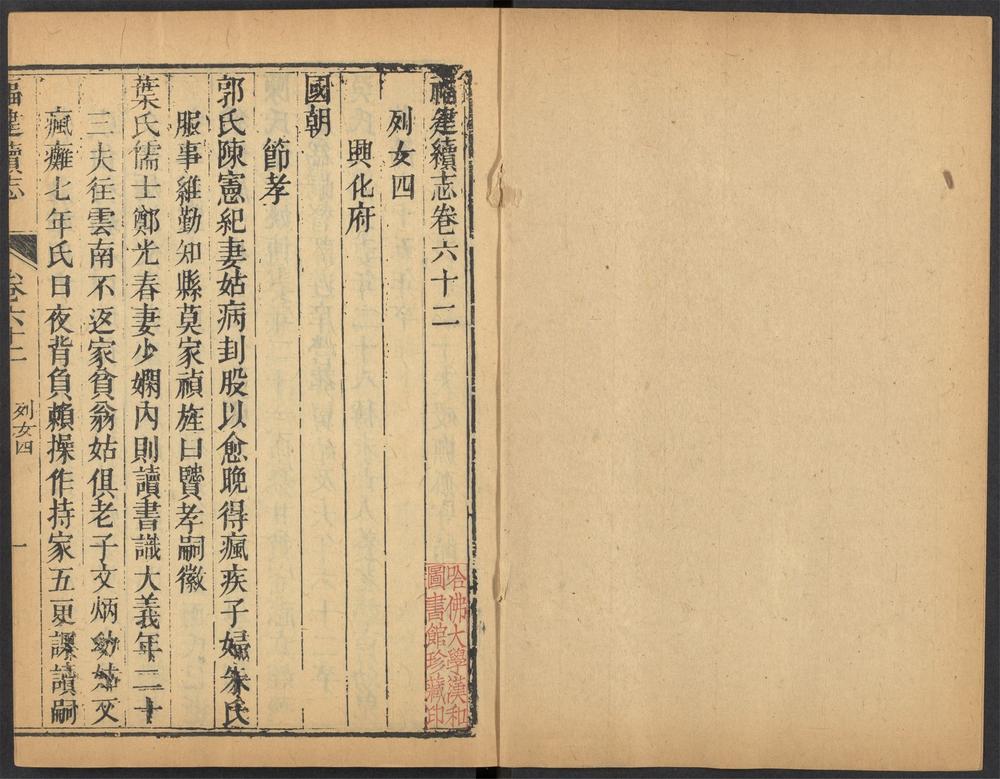 福建續志卷六十二
列女四
興化府
國朝
節孝
郭氏陳憲紀妻姑病刲股以愈晚得瘋疾子婦朱氏
服事維勤知縣莫家禎旌曰賢孝嗣徽
葉氏儒士鄭光春妻少嫻內則讀書識大義年二十
二夫往雲南不返家貧翁姑俱老子文炳幼姑又
瘋癱七年氏日夜背負賴操作持家五更課讀嗣
福建續志
卷六十二
列女四
一
哈佛大學漢和
圖書館珍藏印